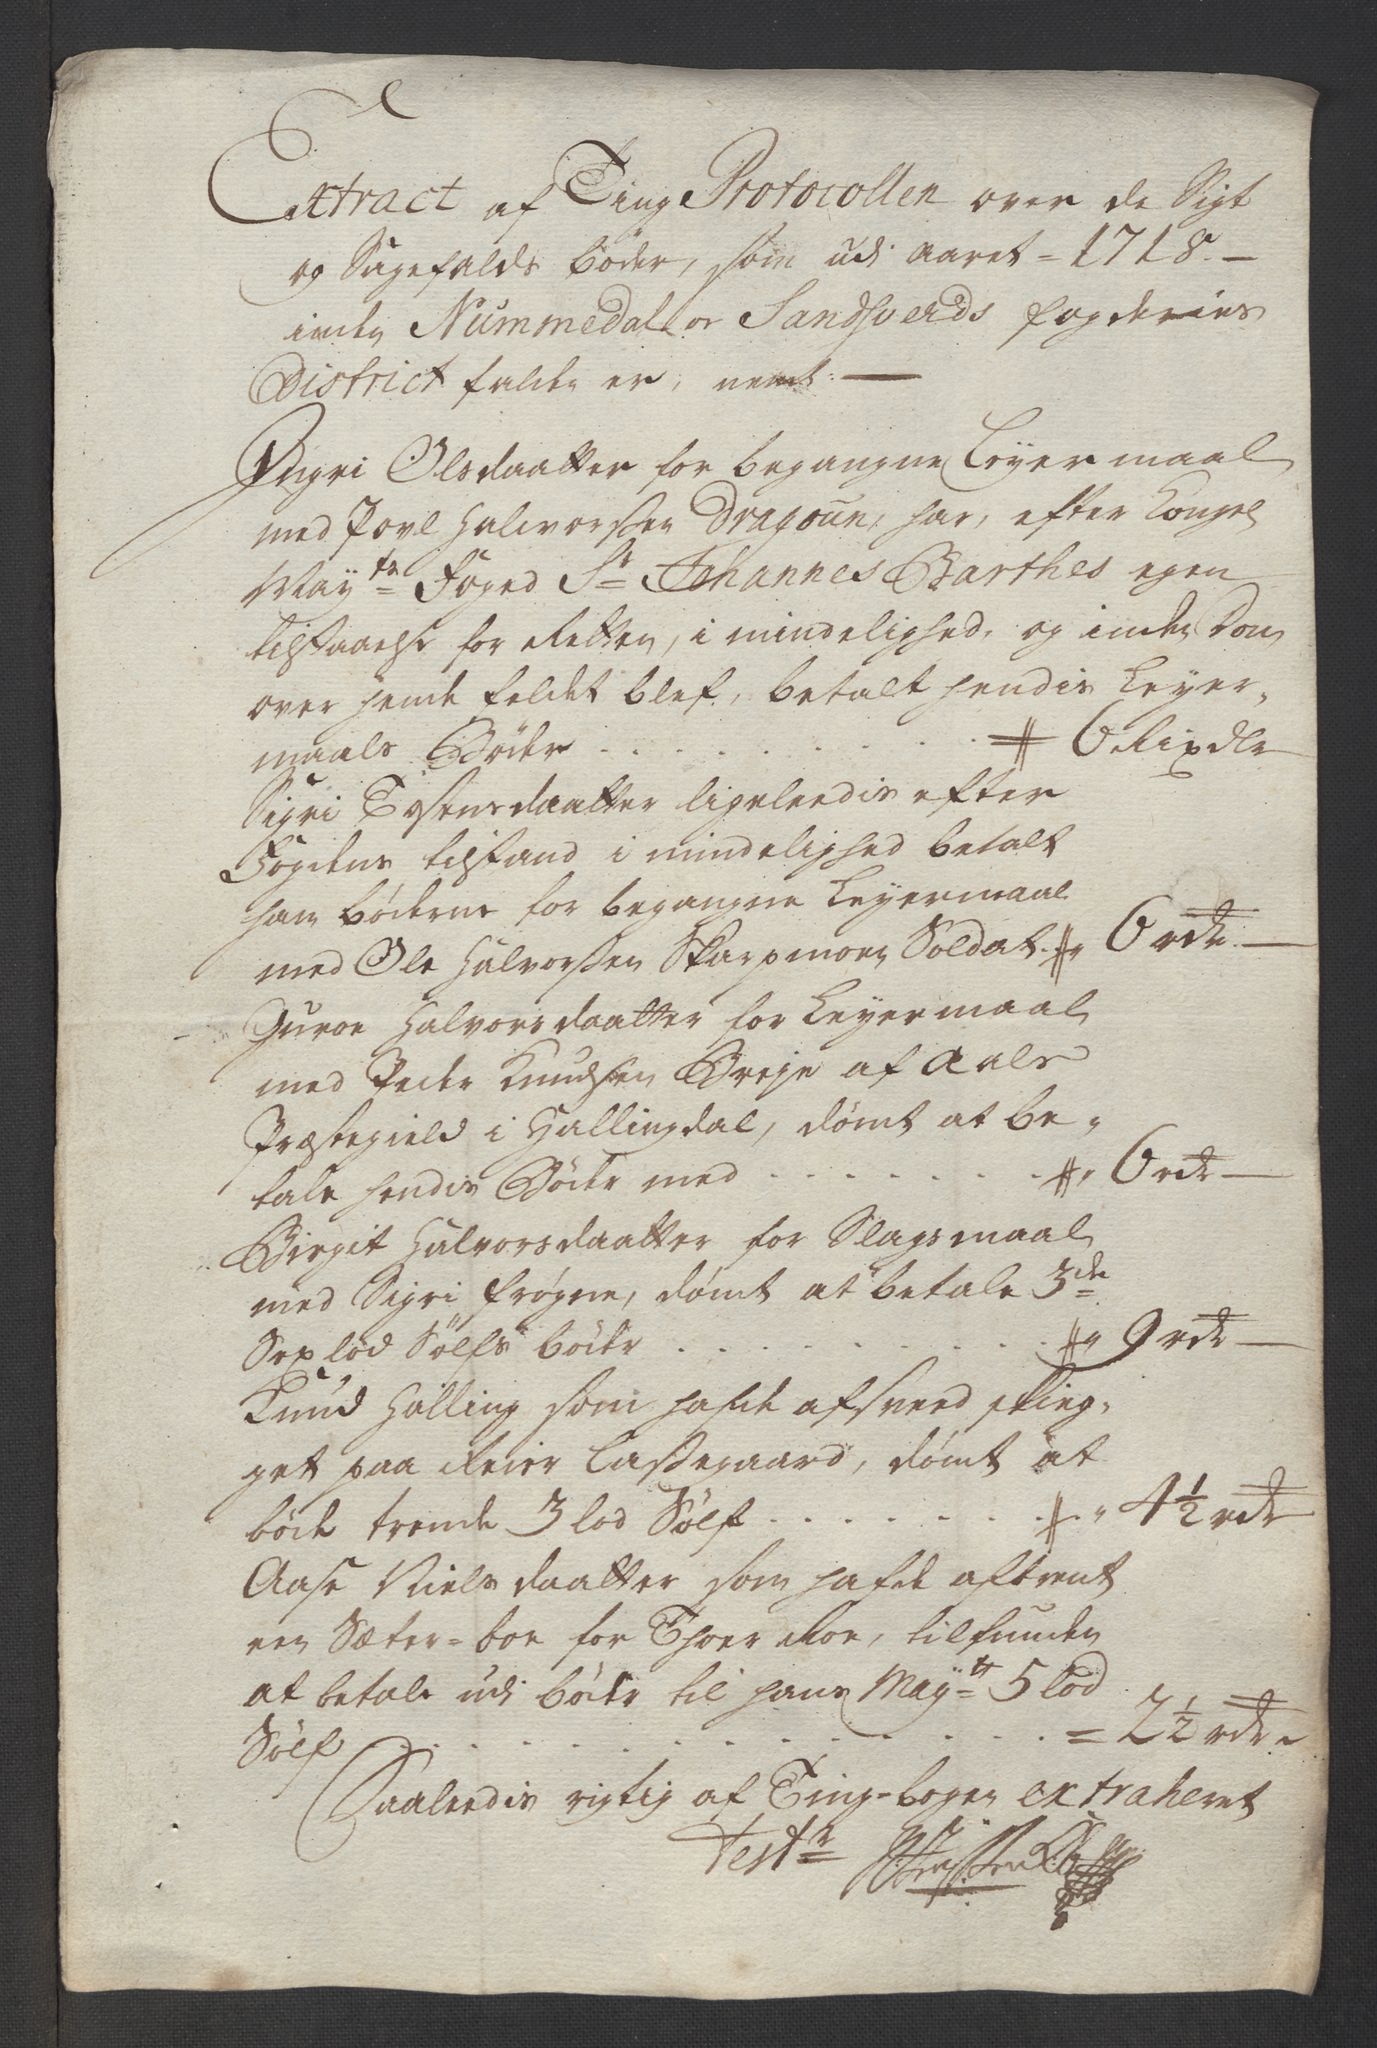 Extract af Ting Protocollen over de Sigt
og Sagefalds bøder, som udi aaret = 1718. —
inden Nummedal og Sandsverds fogderies
District falden er, neml: —
Ingri Olsdaatter for begangne Leyermaal
med Povl Halvorsen Dragoun, har, efter Kongel
Mayts Foged Sr Johannes Barthes egen
tilstaaelse for Retten, i mindelighed, og inden Dom
over hende feldet blef, betalt hendis Leyer-
maals Bøder . . . . . . . . . 6 Rixdlr
Sigri Tostensdaatter ligeleedis efter
Fogdens tilstand i mindelighed betalt
ham bøderne for begangne Leyermaal
med Ole Halvorsen Skarpmoen Soldat . 6 rdr —
Guroe Halvorsdaatter for Leyermaal
med Peder Knudsen Breje af Aals
Præstegield i Hallingdal, dømt at be-
tale hendis Bøder med . . . . . . . 6 rdr —
Birgit Halvorsdaatter for Slagsmaal
med Sigri Frøgne, dømt at betale 3de
Sex lod Sølfs bøder . . . . . . . . . 9 rdr —
Knud Halling som hafde afsneed skieg-
get paa Reier Lassegaard, dømt at
bøde trende 3 lod Sølf . . . . . . . 4½ rdr
Aase Nielsdaatter som hafde afbrent
een Sæter-boe for Thoer Roe, tilfunden
at betale udi bøder til hans Mayt 5 lod
Sølf . . . . . . . . . . . . . . = 2½ rdr
Saaleedis rigtig af Ting-bogen extraheret
Testr